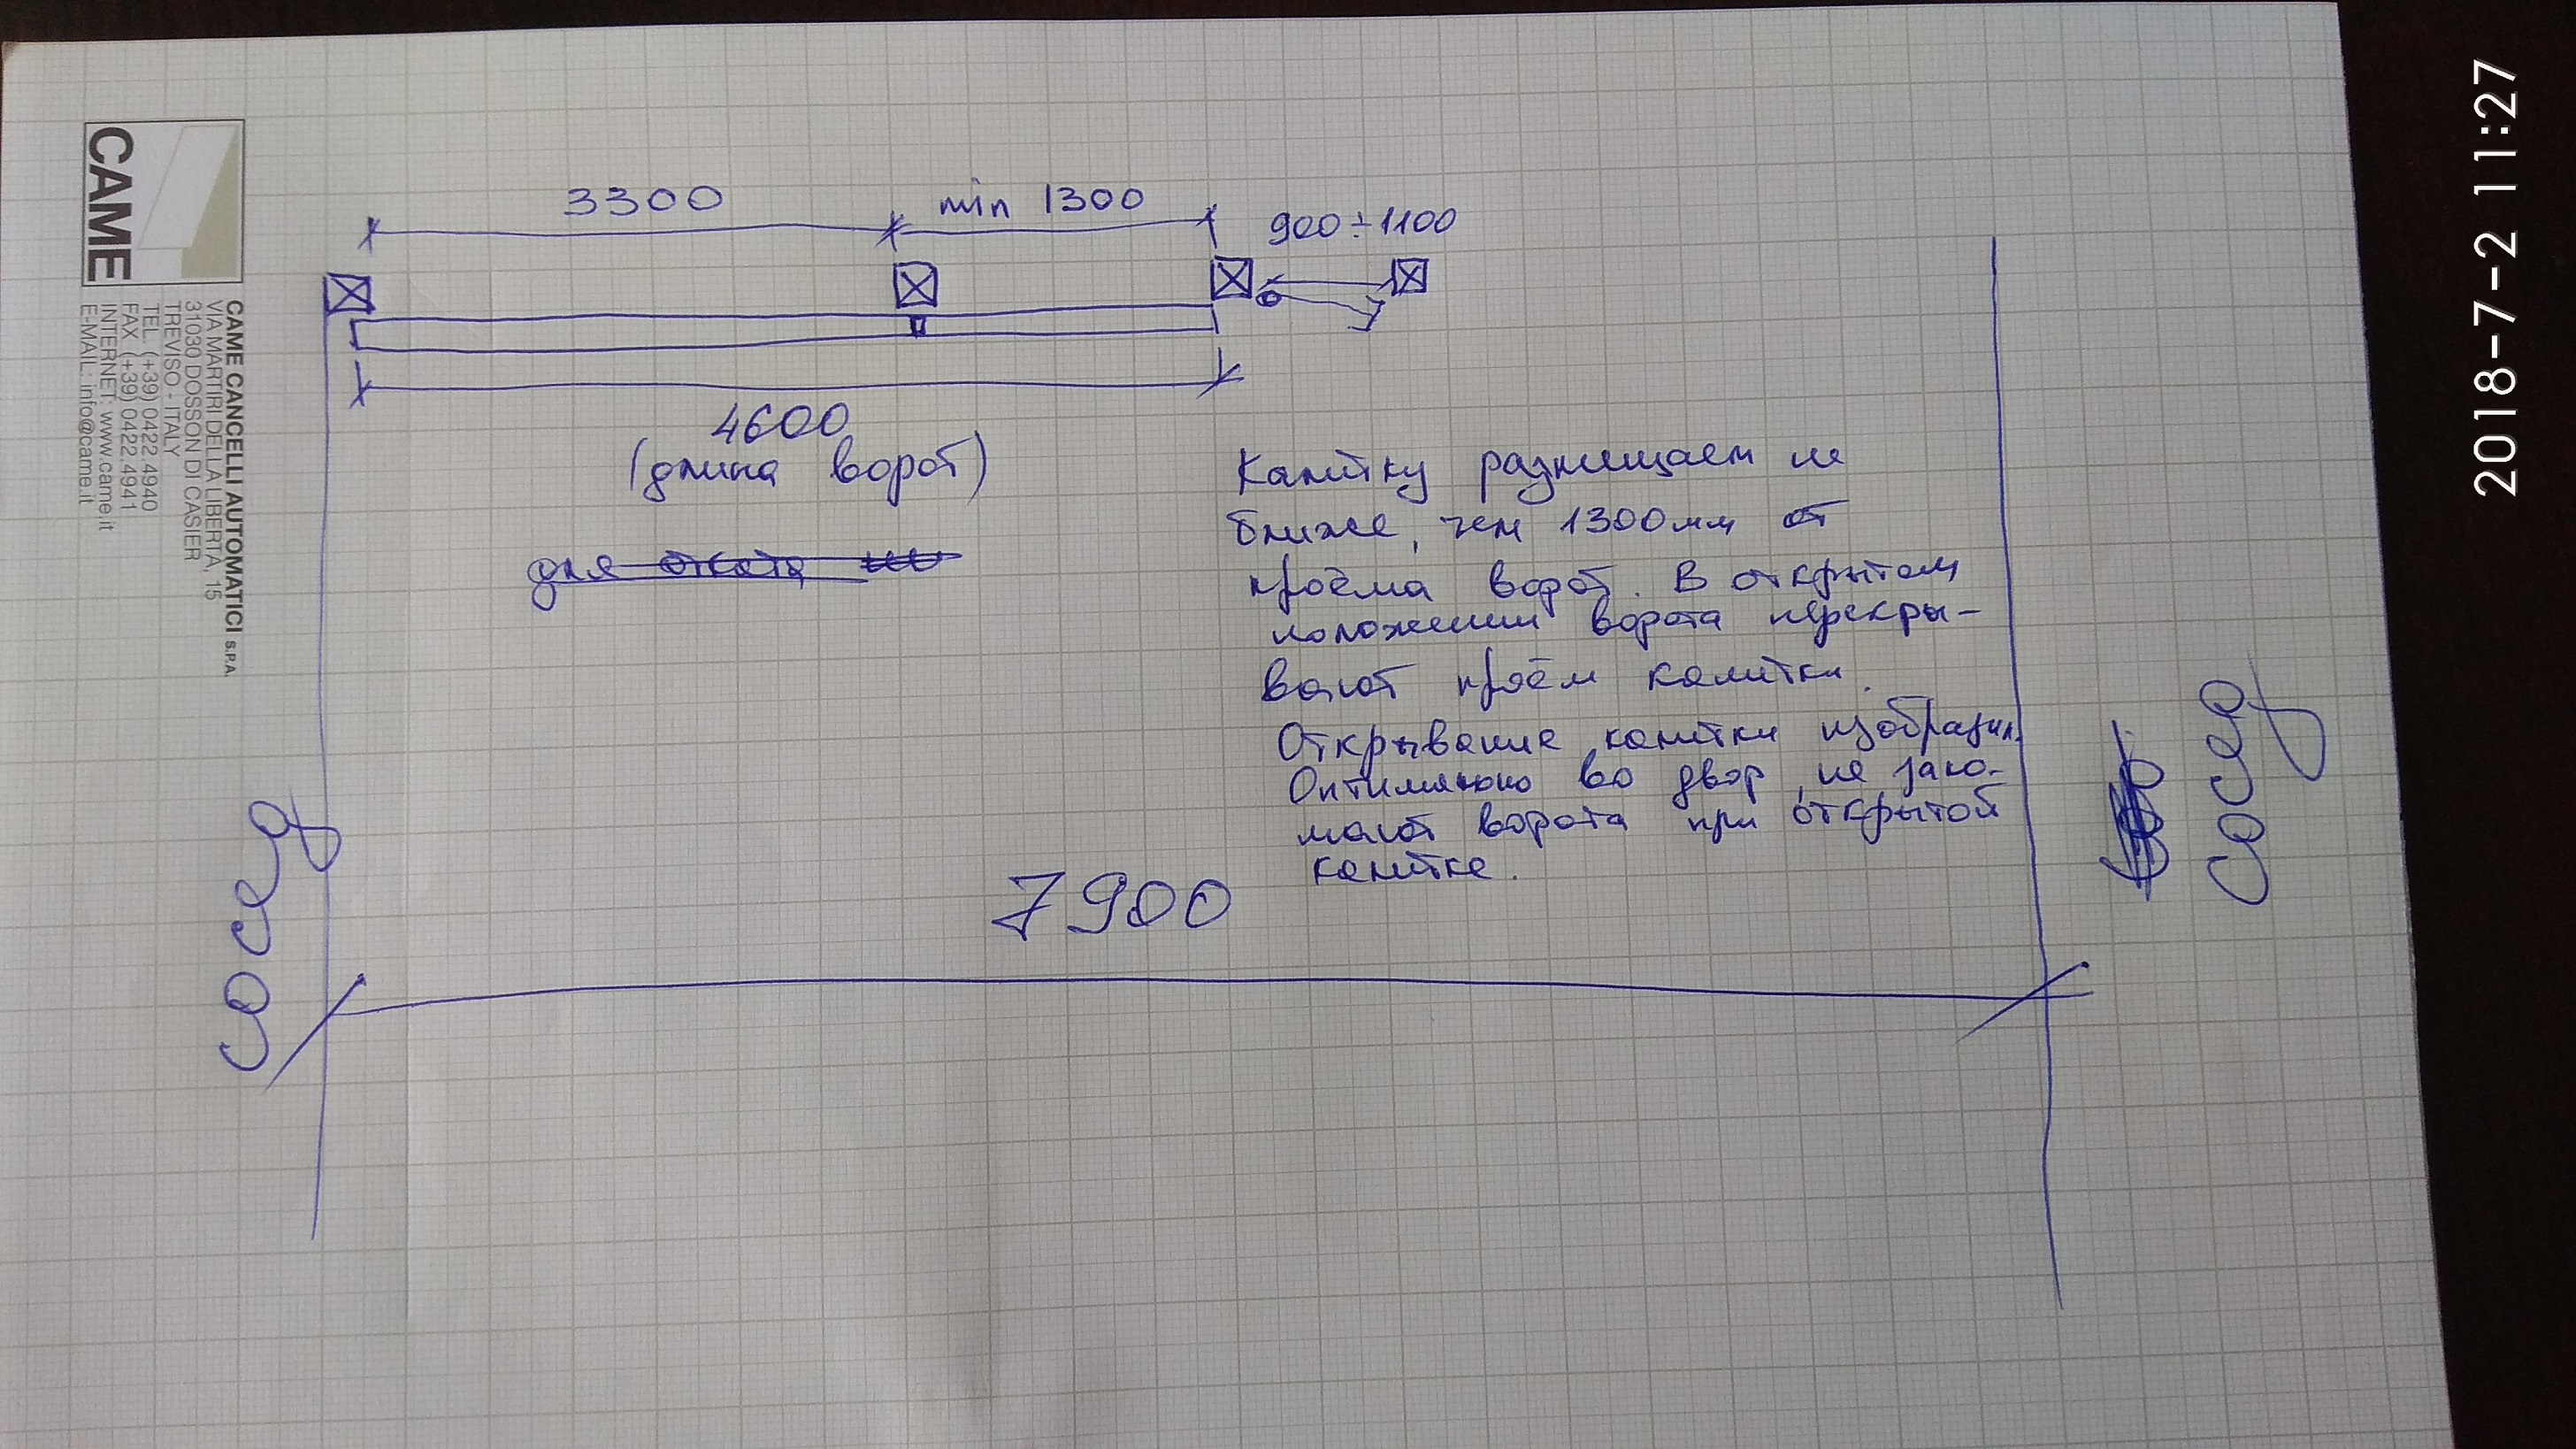 3300
min 1300
900÷1100
4600
(длина ворот)
для отката
Калитку размещаем не
ближе, чем 1300мм от
проёма ворот. В открытом
положении ворота перекры-
вают проём калитки.
Открывание калитки изобразил.
Оптимально во двор, не
ворота при открытой
калитке.
7900
сосед
сосед
CAME
CAME CANCELLI AUTOMATICI S.P.A.
VIA MARTIRI DELLA LIBERTÀ, 15
31030 DOSSON DI CASIER
TREVISO - ITALY
TEL. (+39) 0422 4940
FAX (+39) 0422 4941
INTERNET: www.came.it
E-MAIL: info@came.it
2018-7-2 11:27